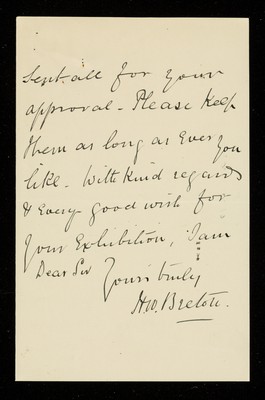 Sept. all for your
approval - Please Keep
them as long as Ever you
like. With Kind regards
& Every good wish for
your Exhibition, I am
Dear Sir Yours truly
HW. Breton.